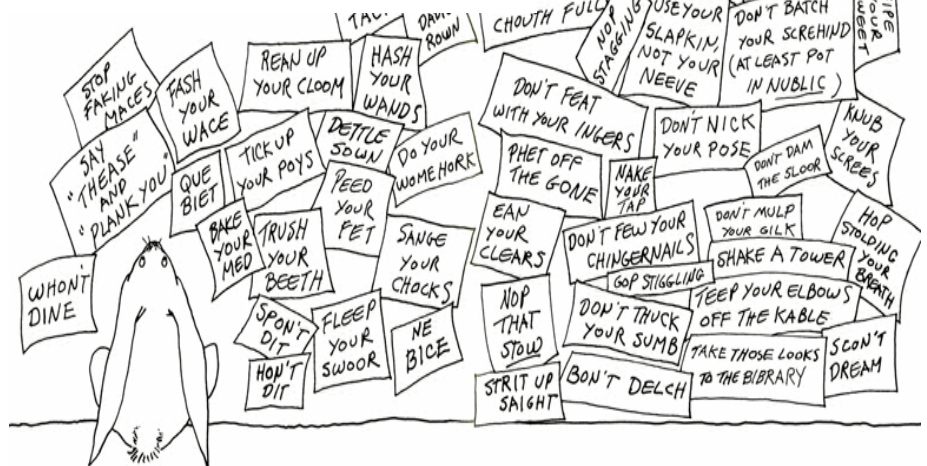 CHOUTH FULL
NOP
STAGGING
USE YOUR
SLAPKIN,
NOT YOUR
NEEVE
DON'T BATCH
YOUR SCREHIND
(AT LEAST POT
IN NUBLIC)
STOP
FAKING
MACES
FASH
YOUR
WACE
REAN UP
YOUR CLOOM
HASH
YOUR
WANDS
DON'T FEAT
WITH YOUR INGERS
DON'T NICK
YOUR POSE
KNUB
YOUR
SCREES
SAY
"THEASE"
AND
"PLANK YOU"
QUE
BIET
TICK UP
YOUR POYS
DETTLE
SOWN
DO YOUR
WOMEHORK
PHET OFF
THE GONE
NAKE
YOUR
TAP
DON'T DAM
THE SLOOR
BAKE
YOUR
MED
TRUSH
YOUR
BEETH
PEED
YOUR
FET
SANGE
YOUR
CHOCKS
EAN
YOUR
CLEARS
DON'T FEW YOUR
CHINGERNAILS
DON'T MULP
YOUR GILK
HOP
STOLDING
YOUR
BREATH
WHON'T
DINE
GOP STIGGLING
SHAKE A TOWER
SPON'T
DIT
FLEEP
YOUR
SWOOR
NE
BICE
NOP
THAT
STOW
DON'T THUCK
YOUR SUMB
TEEP YOUR ELBOWS
OFF THE KABLE
HON'T
DIT
STRIT UP
SAIGHT
BON'T DELCH
TAKE THOSE LOOKS
TO THE BIBRARY
SCON'T
DREAM